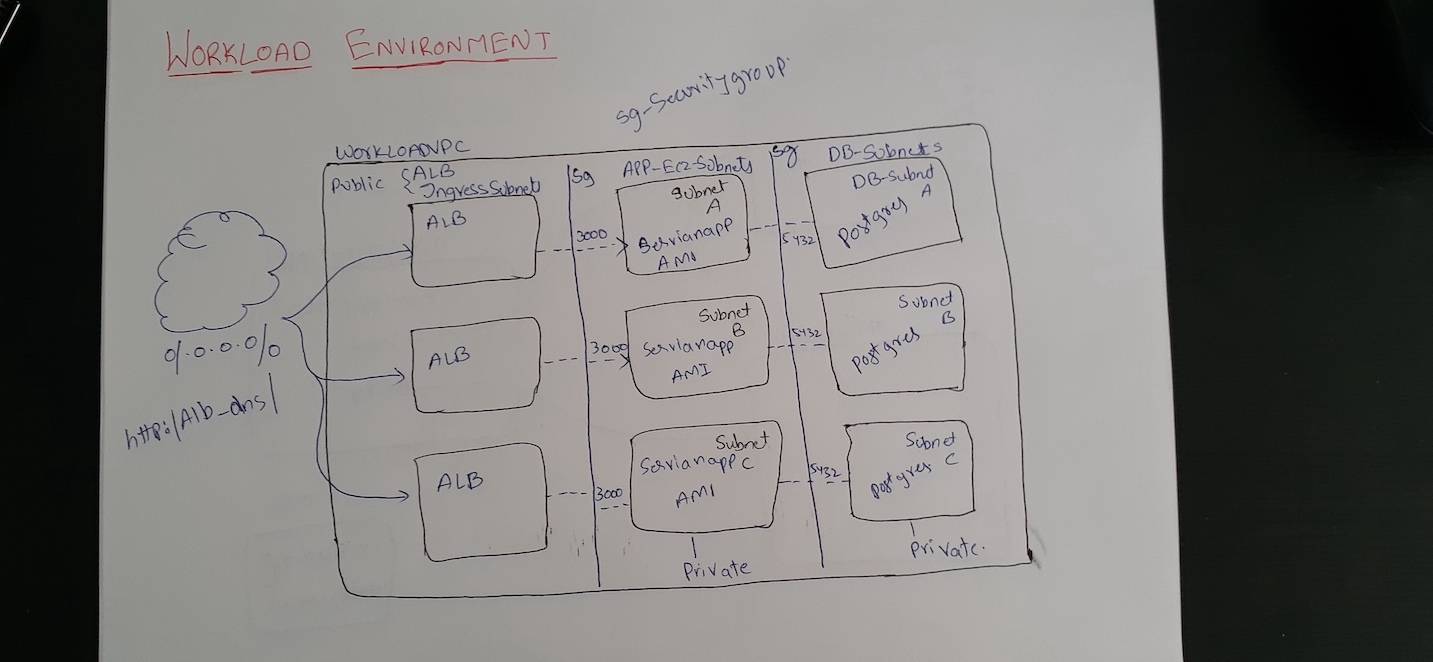 WORKLOAD ENVIRONMENT
sg-Securitygroup
WORKLOADVPC
Public { ALB
IngressSubnets
sg
APP-Ec2-Subnets
sg
DB-Subnets
ALB
3000
Subnet
A
Servianapp
AMI
5432
DB-Subnet
A
Postgres
0.0.0.0/0
http:/Alb_dns/
ALB
3000
Subnet
B
Servianapp
AMI
5432
Subnet
B
Postgres
ALB
3000
Subnet
Servianapp C
AMI
5432
Subnet
Postgres C
Private
Private.